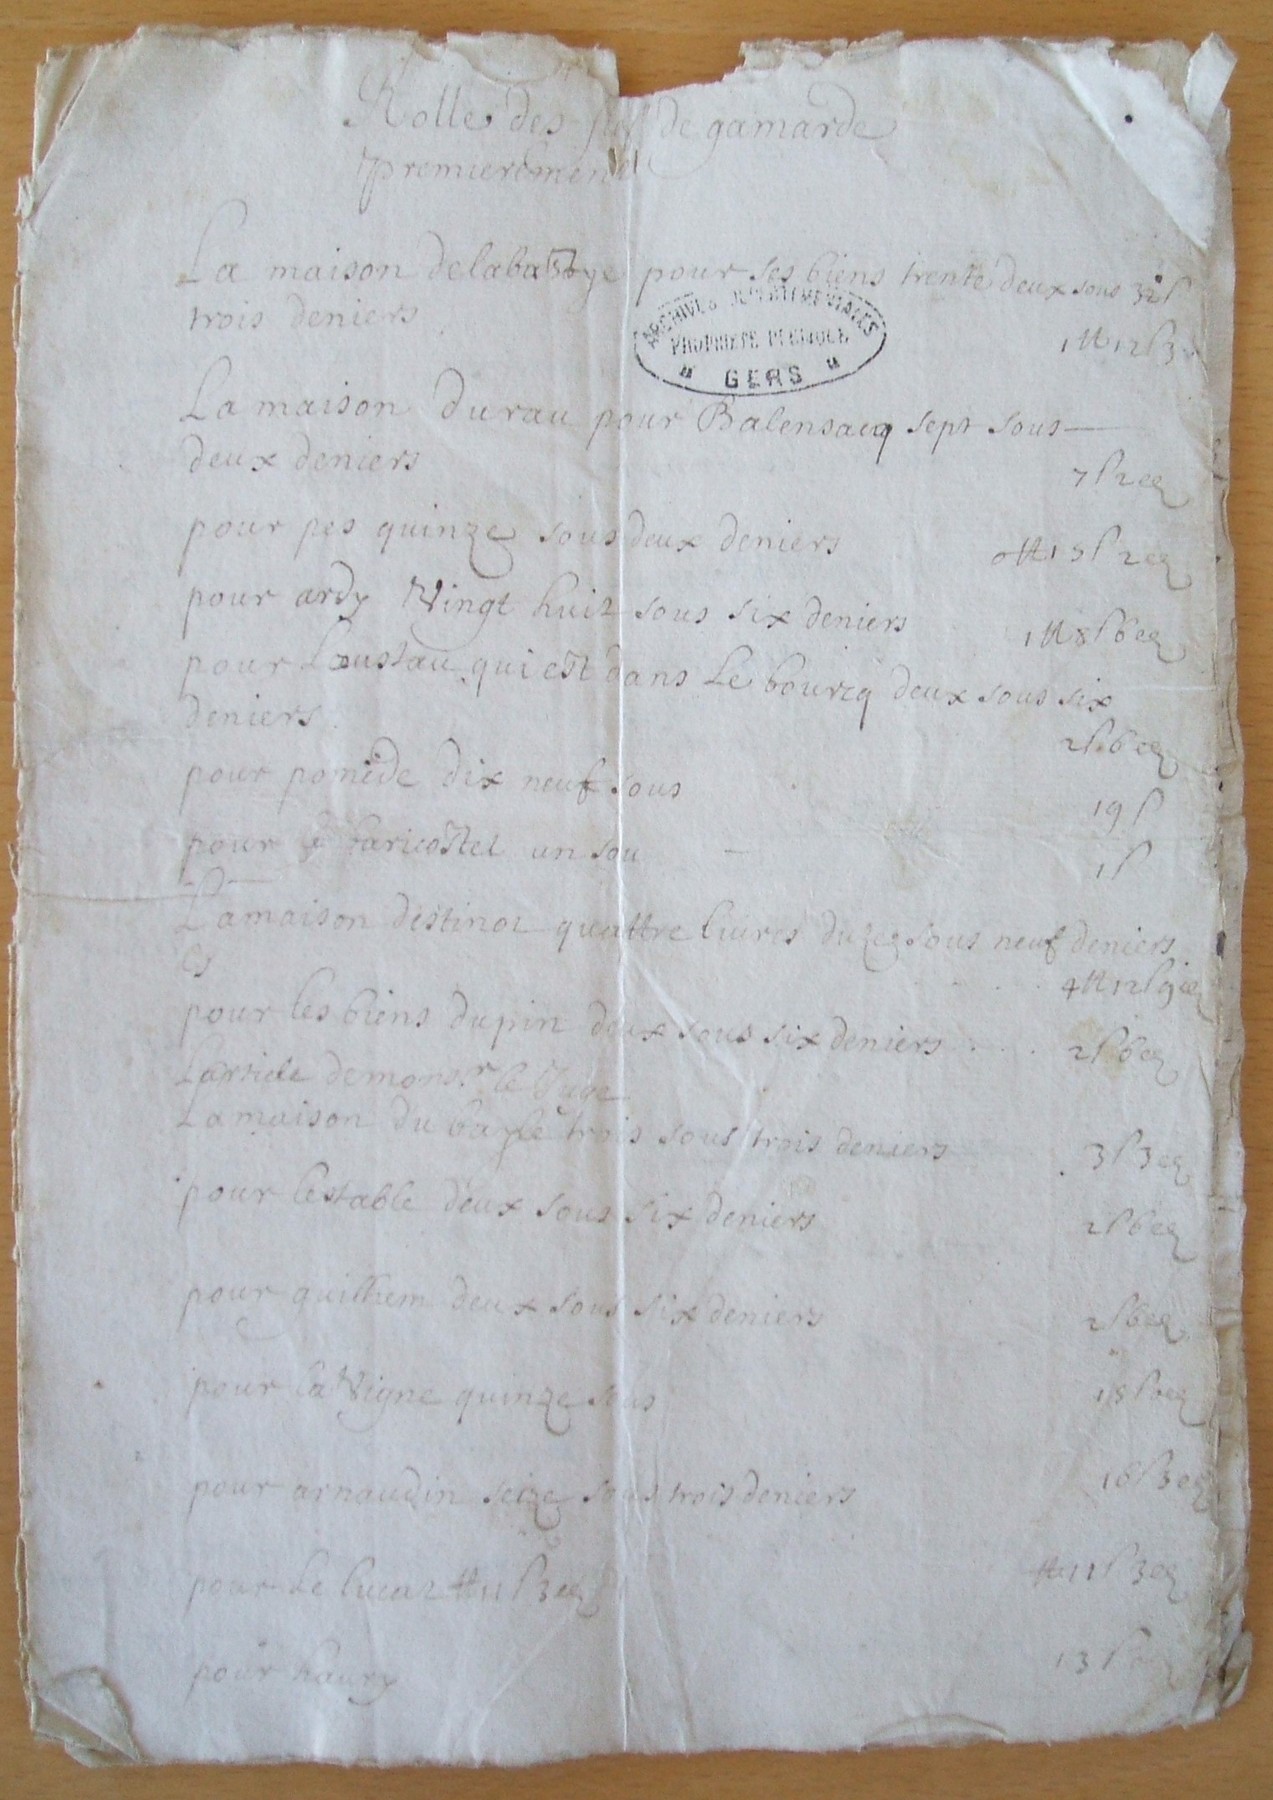 Rolle des fief de gamarde
premierement
La maison delabastye pour ses biens trente deux sous 32 s
trois deniers
1 tt 12 s 3
ARCHIVES DEPARTEMENTALES
PROPRIETE PUBLIQUE
" GERS "
La maison durau pour Balensacq sept sous
deux deniers
7 s 2 ee
pour pes quinze sous deux deniers 0 tt 15 s 2 ee
pour ardy Vingt huit sous six deniers 1 tt 8 s 6 ee
pour Loustau qui est dans Le bourcq deux sous six
deniers
2 s 6 ee
pour poméde dix neuf sous 19 s
pour haricostet un sou 1 s
La maison destinot quattre livres duze sous neuf deniers
4 tt 12 s 9 ee
pour les biens dupin deux sous six deniers 2 s 6 ee
Larticle demonsr le Juge
La maison du bayle trois sous trois deniers 3 s 3 ee
pour lestable deux sous six deniers 2 s 6 ee
pour guilhem deux sous six deniers 2 s 6 ee
pour la Vigne quinze sous 15 s 0 ee
pour arnaudin seize sous trois deniers 16 s 3 ee
pour Le lucat tt 11 s 3 ee tt 11 s 3 ee
pour haury 13 s